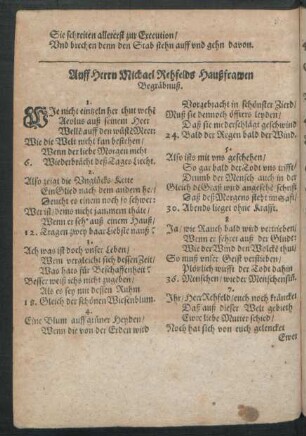 Sie schreiten allererst zur Execution/
Vnd brechen denn den Stab stehn auff vnd gehn davon.
Auff Herrn Michael Rehfelds Haußfrawen
Begräbnuß.
1.
WIe nicht eintzeln her thut wehn
Aeolus auff seinem Heer
Well auff den wüsten Meer:
Wie die Welt nicht kan bestehen/
Wenn der liebe Morgen nicht
6. Wiederbrächt deß Tages Liecht.
2.
Also zeigt die Vnglücks-Kette
Ein Glied nach dem andern her/
Seuckt es einem noch so schwer:
Wer ist der wo nicht jammern thäte/
Wenn er seh' auß einem Hauß/
12. Tragen zwey baar Liebste nauß?
3.
Ach was ist doch vnser Leben/
Wenn vergleicht sich dessen Zeit/
Was hats für Beschaffenheit?
Besser weiß ichs nicht zugeben/
Als es sey mit dessen Ruhm
18. Gleich der schönen Wiesenblum.
4.
Eine Blum auff grüner Heyden/
Wenn die von der Erden wird
Vorgebracht in schönster Zierd/
Muß sie dennoch öffters leyden/
Daß sie niederschlägt geschwind
24. Bald der Regen bald der Wind.
5.
Also ists mit vns geschehen/
So gar bald der Tod vns trifft/
Dennd der Mensch auch in das
Gleich deß Graß wird angesehe
Daß deß Morgens steht
30. Abends lieget ohne Krafft.
6.
Ja/ wie Rauch bald wird vertrieben/
Wenn er fehret auß der Glut/
Wie der Wind den Wolcken thut/
So muß vnser Geist verstieben/
Plötzlich wufft der Todt dahin
36. Menschen/ wieder Menschensinn.
7.
Ihr/ Herr Rehfeld/ euch noch kräncket
Daß auß dieser Welt gebieth
Ewre liebe Mutter schied/
Noch hat sich von euch gelencket
Ewer